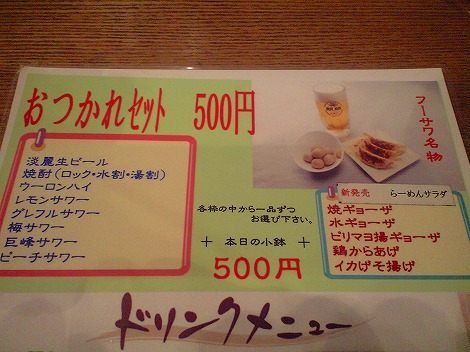 おつかれセット 500円
フーサワ名物
淡麗生ビール
焼酎(ロック・水割・湯割)
ウーロンハイ
レモンサワー
グレフルサワー
梅サワー
巨峰サワー
ピーチサワー
各枠の中から一品ずつ
お選び下さい。
+ 本日の小鉢 +
500円
新発売 らーめんサラダ
焼ギョーザ
水ギョーザ
ピリマヨ揚ギョーザ
鶏からあげ
イカげそ揚げ
ドリンクメニュー